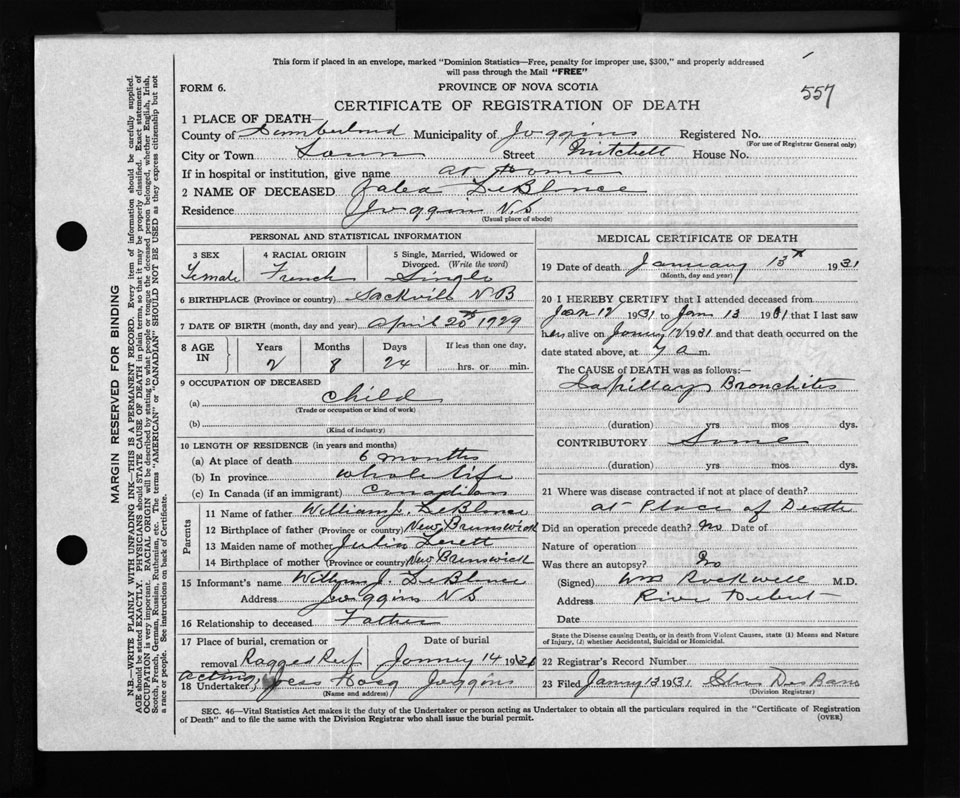 This form if placed in an envelope, marked "Dominion Statistics—Free, penalty for improper use, $300," and properly addressed
will pass through the Mail "FREE"
557
FORM 6.
PROVINCE OF NOVA SCOTIA
CERTIFICATE OF REGISTRATION OF DEATH
1 PLACE OF DEATH—
County of Cumberland Municipality of Joggins Registered No.
(For use of Registrar General only)
City or Town Town Street Mitchell House No.
If in hospital or institution, give name at Home
2 NAME OF DECEASED DeBlonce
Residence Joggins N.S
(Usual place of abode)
PERSONAL AND STATISTICAL INFORMATION
3 SEX 4 RACIAL ORIGIN 5 Single, Married, Widowed or
Divorced. (Write the word)
Female French Single
6 BIRTHPLACE (Province or country) Sackvill N B
7 DATE OF BIRTH (month, day and year) April 20th 1929
8 AGE IN Years Months Days If less than one day,
2 8 24 hrs. or min.
9 OCCUPATION OF DECEASED
(a) child
(Trade or occupation or kind of work)
(b)
(Kind of industry)
10 LENGTH OF RESIDENCE (in years and months)
(a) At place of death 6 months
(b) In province whole life
(c) In Canada (if an immigrant) Canadian
Parents
11 Name of father William J. DeBlonce
12 Birthplace of father (Province or country) New Brunswick
13 Maiden name of mother Julia
14 Birthplace of mother (Province or country) New Brunswick
15 Informant's name William J. DeBlonce
Address Joggins N S
16 Relationship to deceased Father
17 Place of burial, cremation or Date of burial
removal Ragged Reef Janney 14 1931
acting
18 Undertaker Jess Joggins
(Name and address)
MEDICAL CERTIFICATE OF DEATH
19 Date of death January 13th 1931
(Month, day and year)
20 I HEREBY CERTIFY that I attended deceased from
Jan 12 1931 to Jan 13 1931 that I last saw
her alive on Janney 12 1931 and that death occurred on the
date stated above, at 7 a m.
The CAUSE of DEATH was as follows:—
Capillary Bronchites
(duration) yrs mos dys.
CONTRIBUTORY Some
(duration) yrs mos dys.
21 Where was disease contracted if not at place of death?
at Place of Death
Did an operation precede death? No Date of
Nature of operation
Was there an autopsy? No
(Signed) Wm Rockwell M.D.
Address River Hebert
Date
State the Disease causing Death, or in death from Violent Causes, state (1) Means and Nature
of Injury, (2) whether Accidental, Suicidal or Homicidal.
22 Registrar's Record Number
23 Filed Janney 13 1931
(Division Registrar)
SEC. 46—Vital Statistics Act makes it the duty of the Undertaker or person acting as Undertaker to obtain all the particulars required in the "Certificate of Registration
of Death" and to file the same with the Division Registrar who shall issue the burial permit.
(OVER)
MARGIN RESERVED FOR BINDING
N.B.—WRITE PLAINLY WITH UNFADING INK—THIS IS A PERMANENT RECORD. Every item of information should be carefully supplied.
AGE should be stated EXACTLY. PHYSICIANS should STATE CAUSE OF DEATH in plain terms, so that it may be properly classified. Exact statement of
OCCUPATION is very important. RACIAL ORIGIN will be described by stating to what people or tongue the deceased person belonged, whether English, Irish,
Scotch, French, German, Russian, Ruthenian, etc. The terms "AMERICAN" or "CANADIAN" SHOULD NOT BE USED as they express citizenship but not
a race or people. See instructions on back of Certificate.